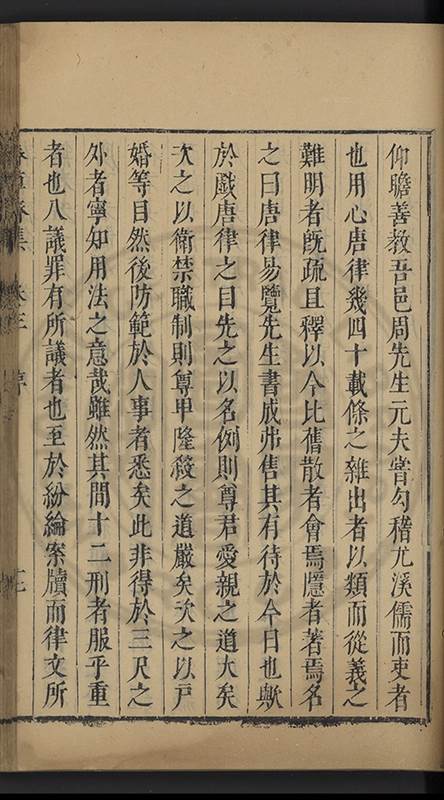 仰瞻善教吾邑周先生元夫嘗勾稽尤溪儒而吏者
也用心唐律幾四十載條之雜出者以類而從義之
難明者既疏且釋以今比舊散者會焉隱者著焉名
之曰唐律易覽先生書成弗售其有待於今日也歟
於戲唐律之目先之以名例則尊君愛親之道大矣
次之以衛禁職制則尊卑隆殺之道嚴矣次之以戸
婚等目然後防範於人事者悉矣此非得於三尺之
外者寧知用法之意哉雖然其間十二刑者服乎重
者也八議罪有所議者也至於紛綸案牘而律文所
集 卷三 序